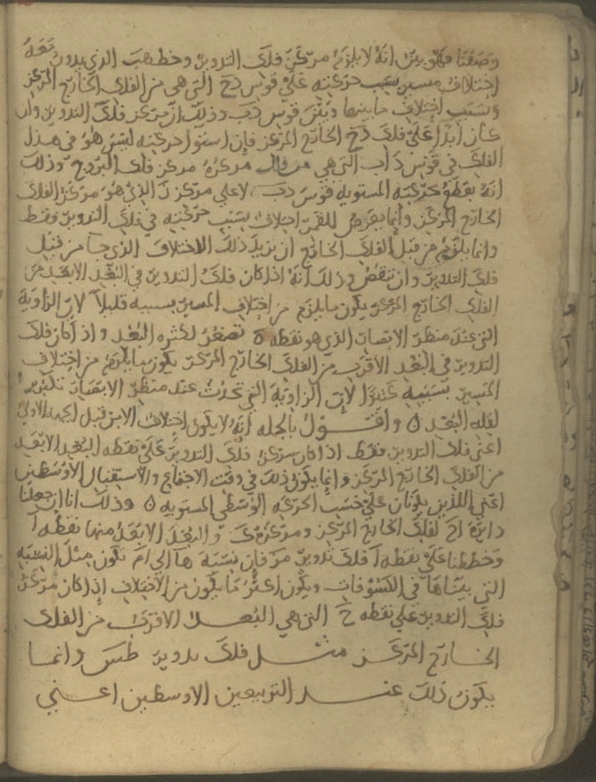 وصفنا فهو بين انه لا يلزم مركز فلك التدوير وخط هب الذي يدور معه
اختلاف مسير بسبب حركته على قوس دح التي هي من الفلك الخارج المركز
وبسبب اختلاف ما بينها وبين قوس دب وذلك ان مركز فلك التدوير وان
كان ابدا على فلك دح الخارج المركز فان استوا حركته ليس هو في هذا
الفلك في قوس دب التي هي مركزه مركز فلك البروج وذلك
انه يقطع بحركته المستويه قوس دب لا على مركز ز الذي هو مركز الفلك
الخارج المركز وانما يعرض للقمر اختلاف بسبب حركته في فلك التدوير فقط
وانما يلزمه من قبل الفلك الخارج ان يزيد ذلك الاختلاف الذي جا من قبل
فلك التدوير وان ينقص وذلك انه اذا كان فلك التدوير في البعد الابعد من
الفلك الخارج المركز يكون ما يلزم من اختلاف المسير بسببه قليلا لان الزاوية
التي عند منظر الابصار الذي هو نقطه ه تصغر لكثره البعد واذا كان فلك
التدوير في البعد الاقرب من الفلك الخارج المركز يكون ما يلزم من اختلاف
المسير بسببه كثيرا لان الزاوية التي تحدث عند منظر الابصار تكبر
لقله البعد ه واقول بالجمله انه لا يكون اختلاف الا من قبل الجهه الاولى
اعني فلك التدوير فقط اذا كان مركز فلك التدوير على نقطه البعد الابعد
من الفلك الخارج المركز وانما يكون ذلك في وقت الاجتماع والاستقبال الاوسطين
اعني اللذين يكونان على حسب الحركه الوسطى المستويه ه وذلك انا ان جعلنا
دايرة اح لفلك الخارج المركز ومركزه ى والبعد الابعد منها نقطه ا
وخططنا على نقطه ا فلك تدوير مز فان نسبة ها الى ام تكون مثل النسبه
التي بيناها في الكسوفات ويكون اعظم ما يكون من الاختلاف اذا كان مركز
فلك التدوير على نقطه ح التي هي البعد الاقرب من الفلك
الخارج المركز مثل فلك تدوير طس وانما
يكون ذلك عند التربيعين الاوسطين اعني